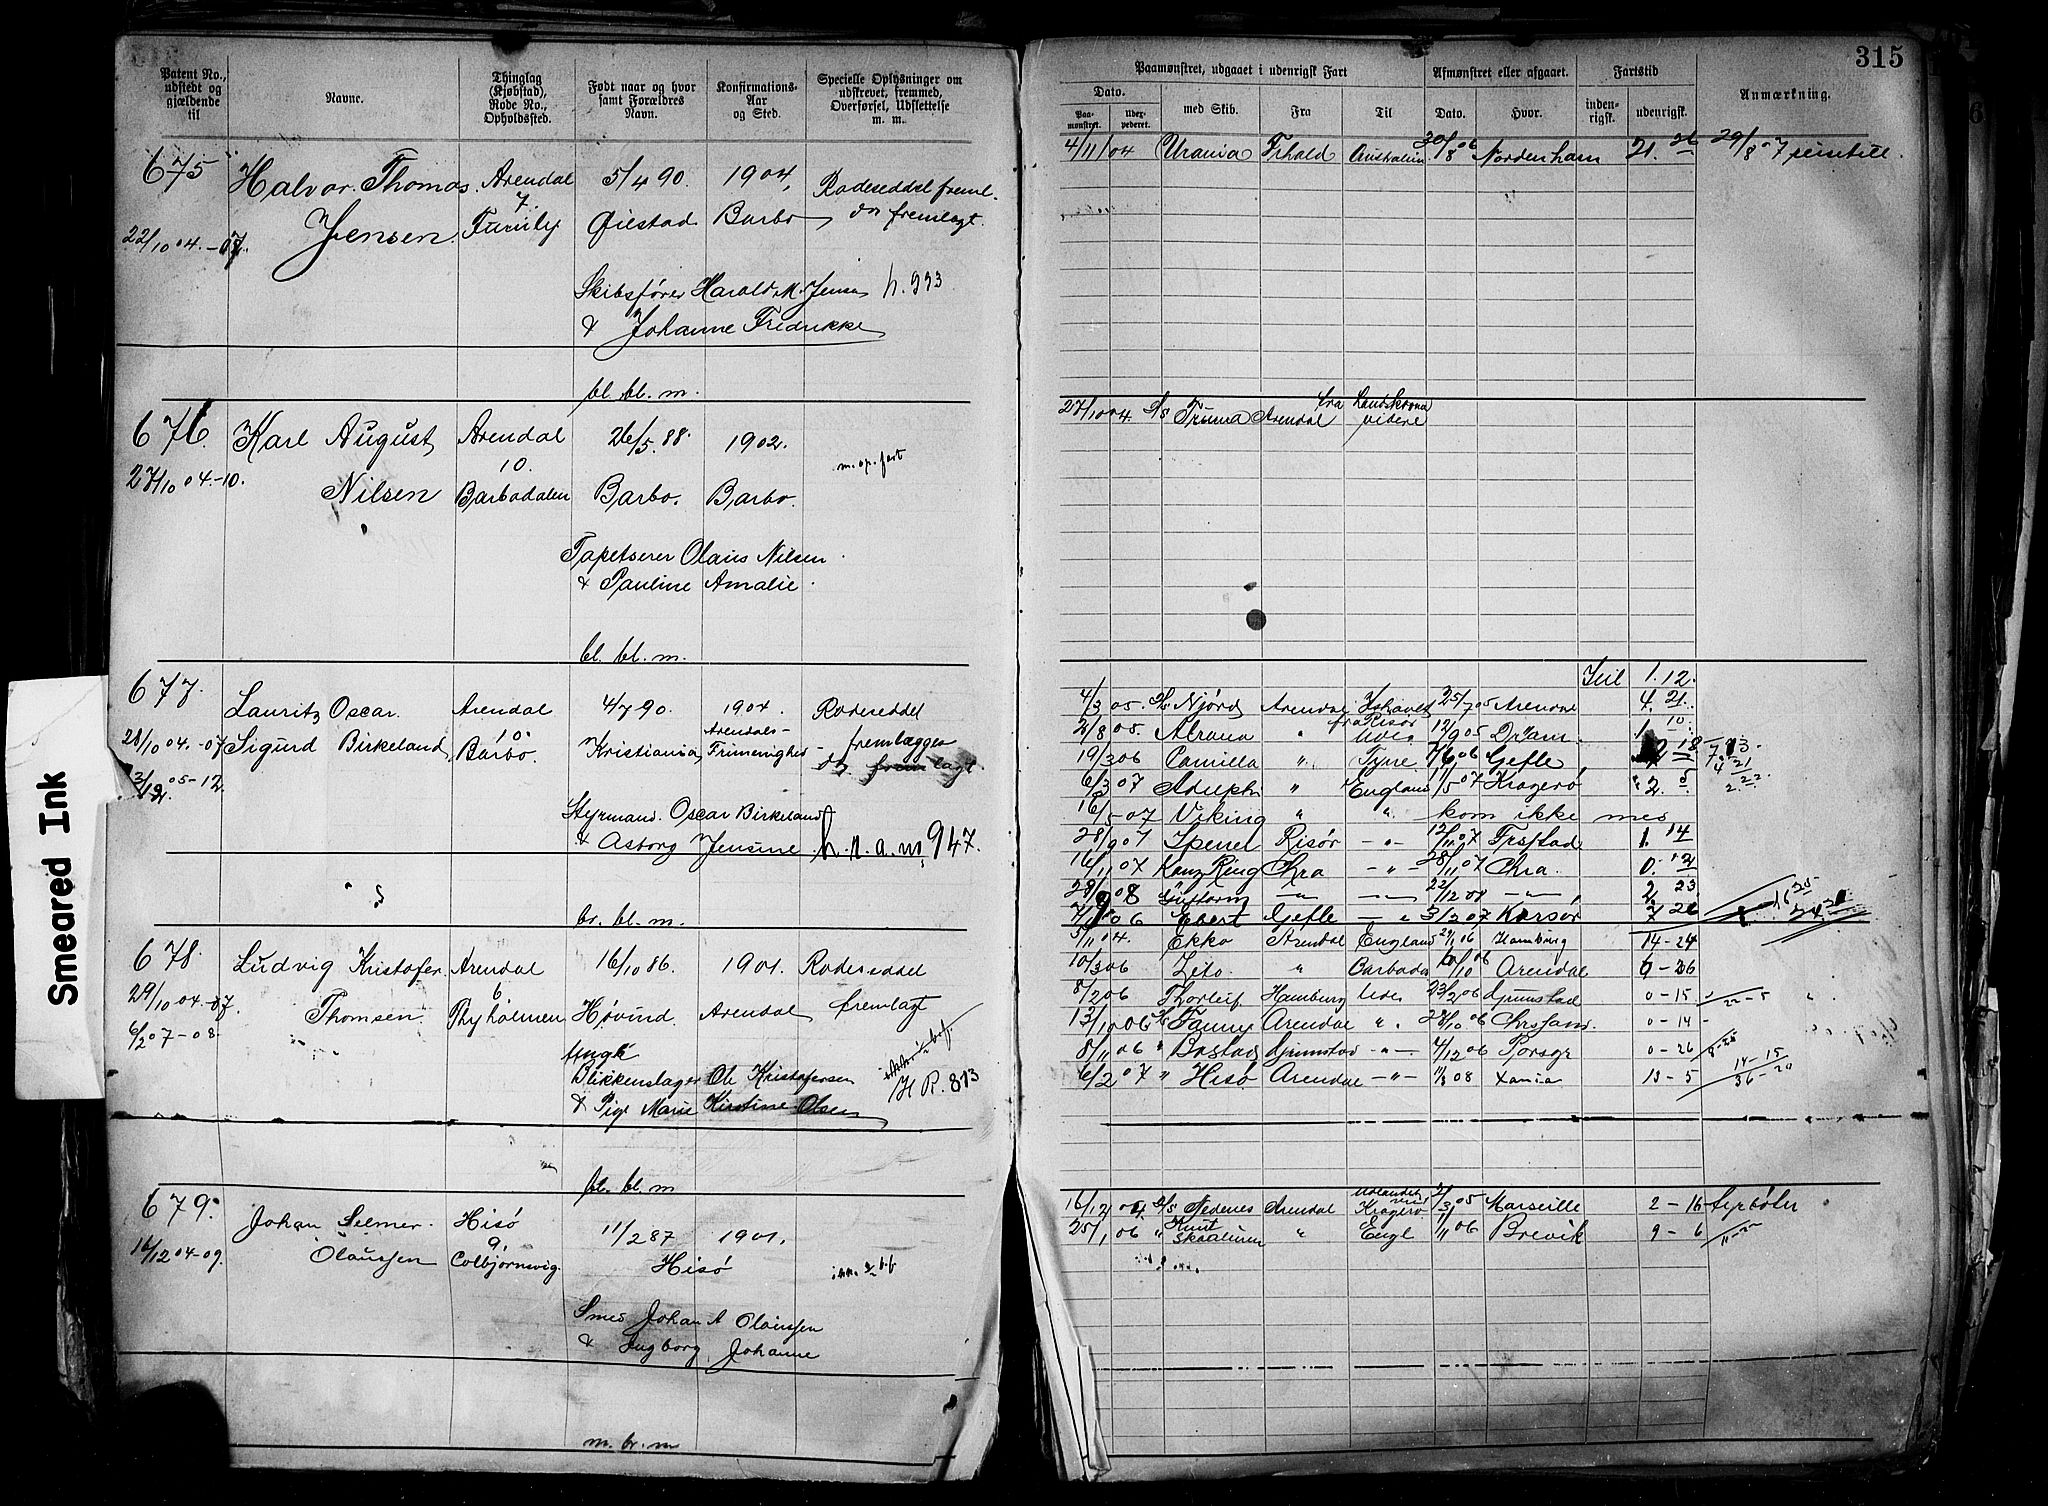 315
Patent No., udstedt og gjældende til
Navne.
Thinglag (Kjøbstad), Rode No., Opholdssted.
Født naar og hvor samt Forældres Navn.
Konfirmations- Aar og Sted.
Specielle Oplysninger om udskrevet, fremmed, Overførsel, Udslettelse m. m.
Paamønstret, udgaaet i udenrigsk Fart
Afmønstret eller afgaaet.
Fartstid
Anmærkning.
Dato.
Paa- mønstret.
Udex- pederet.
med Skib.
Fra
Til
Dato.
Hvor.
inden- rigsk.
udenrigsk.
675
Halvor Thomas Arendal 5/4 90. 1904, Rodeseddel freml.
7.
Jensen. Øiestad Barbo, fremlagt.
22/10 04.-07.
Skibsfører Harald M. Jensen
& Johanne Fredrikke
bl. bl. m.
4/11 04 Urania Australien 30/8 06 Nordenham 21. 26
676. Karl August Arendal 26/5.88. 1902.
27/10 04.-10. 10. m. op. fart
Nilsen Barbodalen Barbo. Barbo.
Tapetserer Olaus Nilsen
& Pauline Amalie.
bl. bl. m.
27/10 04. Arendal fra Landskrona videre
677. Lauritz Oscar. Arendal 4/7 90. 1904. Rodeseddel
28/10 04.-07 Sigurd Birkeland, 10. Barbo. Kristiania, Arendals- Frimenighed fremlægges
05-12.
Styrmand. Oscar Birkeland
& Asborg Jensine 947.
br. bl. m.
1. 12.
4/3 05. Njörd Arendal 25/7 05 Arendal 4. 21.
2/8 05. " fra Risør 12/9 05 Dram. 1 10.
19/3 06 Camilla " Tyne 7/6 06 Gefle, 2 18
6/3 07 " England 11/5 07 Kragerø " 2. 5
16/5 07 Viking " " kom ikke med
28/9 07 Risør - " - 12/11 07 Frstad 1. 14
16/11 07 Kong Ring Chra - " - 28/11 07 Chra. 0. 12
08 - " - 22/12 08 - " - 2. 23
06 Ebert Gefle 3/2 07 Korsør 7 26
678. Ludvig Kristofer Arendal 16/10 86. 1901. Rodeseddel
29/10 04.-07. 6
Thomsen. Thyholmen Høvind. Arendal fremlagt
6/2 07-08
Ungk
Blikkenslager Ole Kristofersen
& Pige Marie Kirstine Olsen
H. R. 813
bl. bl. m
5/11 04. Ekko Arendal England 29/1 06 Hamburg 14-24
10/3 06 Zito. " Barbada 06 Arendal 6-26
8/2 06 Thorleif Hamburg 23/2 06 Grimstad 0-15
13/10 06 Fanny Arendal " 06 Chrsand. 0-14
8/11 06 " Bastad Grimstad - " - 4/12 06 Porsgr 0-26
6/2 07 " Hisø Arendal - " - 08 Xania 13-5
14-15
36-20
679. Johan Selmer. Hisø 11/2 87 1901,
16/12 04-09. 9.
Olaussen Colbjørnsvig. Hisø
Smed Johan A Olaussen
& Ingborg Johanne
m. br. m
16/12 04 S/S Nedenes Arendal Udlandet Kragerø 2/3 05 Marseille 2-16 fyrbøter
25/1 06 " Knut Skaaluren " Engl 06 Brevik 9-6
Smeared Ink